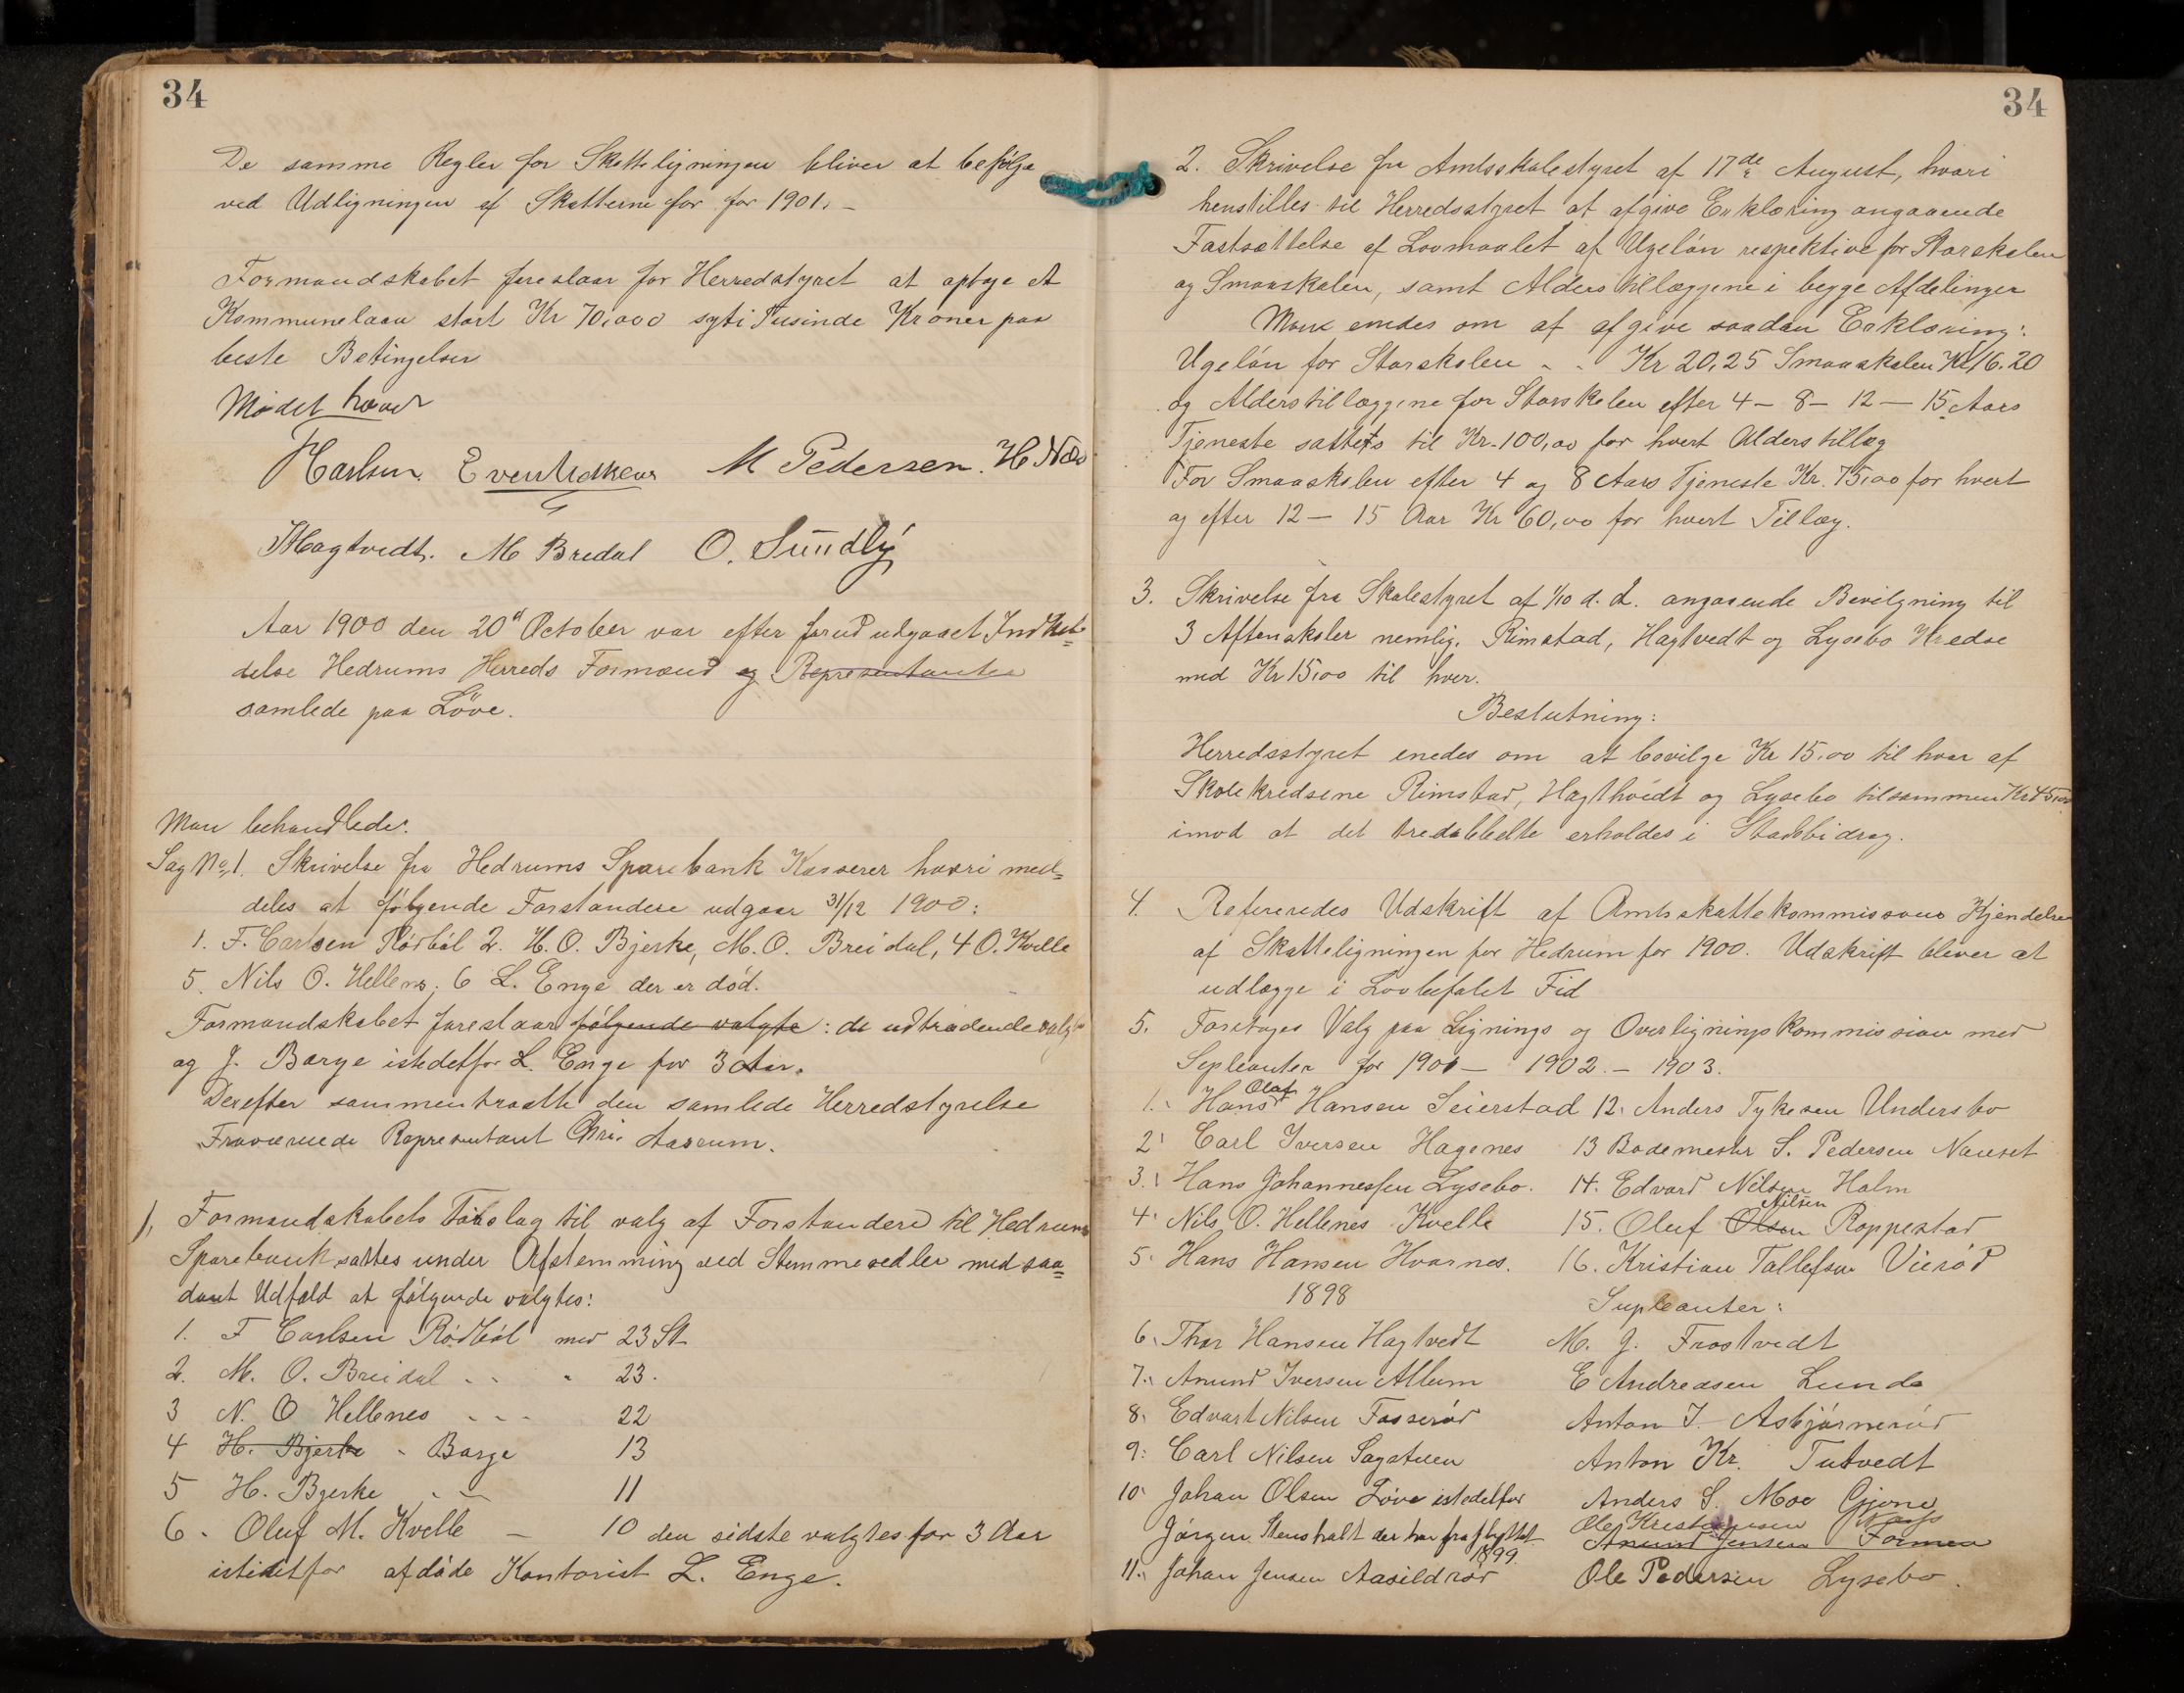 34
De samme Regler for Skatteligningen bliver at befølge
ved Udligningen af Skatterne for for 1901. –
Formandskabet foreslaar for Herredstyret at optage et
Kommunelaan stort Kr 70,000 sytti Tusinde Kroner paa
beste Betingelser
Mødet hævet
M Pedersen. H Næs
Hagtvedt. M Bredal O. Sundby
Aar 1900 den 20d October var efter forud udgaaet Indkal=
delse Hedrums Herreds Formænd og Representanter
samlede paa Löve.
Man behandlede:
Sag No 1. Skrivelse fra Hedrums Sparebank Kasserer hvori med=
deles at følgende Forstandere udgaar 31/12 1900:
1. F. Carlsen Rødbøl 2. H. O. Bjerke, M. O. Breidal, 4 O. Kvelle
5. Nils O. Hellenes, 6 L. Enge der er død.
Formandskabet foreslaar følgende valgte: de udtrædende valgt
og J. Barge istedetfor L. Enge for 3 Aar.
Derefter sammentraatte den samlede Herredstyrelse
Fraværende Representant Chri. Aasrum.
1, Formandskabets Forslag til valg af Forstandere til Hedrums
Sparebank sattes under Afstemming ved Stemmesedler med saa=
dant Udfald at følgende valgtes:
1. F Carlsen Rødbøl med 23 St.
2. M. O. Breidal - - 23.
3 N. O Hellenes - - - 22
4 H. Bjerke - Barge 13
5 H. Bjerke - - 11
6. Oluf M. Kvelle – 10 den sidste valgtes for 3 Aar
istedetfor afdøde Kontorist L. Enge.
34
2. Skrivelse fra Amtsskolestyret af 17de August, hvori
henstilles til Herredsstyret at afgive Erklæring angaaende
Fastsættelse af Lovmaalet af Ugeløn respektive for Storskolen
og Smaaskolen, samt Alderstillæggene i begge Afdelinger
Man enedes om at afgive saadan Erklæring:
Ugeløn for Storskolen - - Kr 20,25 Smaaskolen Kr 16.20
og Alderstillæggene for Storskolen efter 4 – 8 – 12 – 15 Aars
Tjeneste sattets til Kr. 100,00 for hvert Alderstillæg
For Smaaskolen efter 4 og 8 Aars Tjeneste Kr. 75,00 for hvert
og efter 12 – 15 Aar Kr 60,00 for hvert Tillæg.
3. Skrivelse fra Skolestyret af 1/10 d. d. angaaende Bevilgning til
3 Aftenskoler nemlig. Rimstad, Hagtvedt og Lysebo Kredse
med Kr 15,00 til hver.
Beslutning:
Herredsstyret enedes om at bevilge Kr 15,00 til hver af
Skolekredsene Rimstad, Hagthvedt og Lysebo tilsammen Kr 45,00
imod at det tredobbelte erholdes i Statsbidrag.
4. Refereredes Udskrift af Amtsskattekommissons Kjendelse
af Skatteligningen for Hedrum for 1900. Udskrift bliver at
udlægge i Lovbefalet Tid
5. Foretages Valg paa Lignings og Overligningskommission med
Sepleanter for 1901 – 1902 – 1903.
1. Hans Olaf Hansen Seierstad
2. Carl Iversen Hagenes
3. Hans Johannessen Lysebo.
4. Nils O. Hellenes Kvelle
5. Hans Hansen Hvarnes.
1898
6. Thor Hansen Hagtvedt
7. Anund Iversen Allum
8. Edvart Nilsen Fosserød
9. Carl Nilsen Sagstuen
10. Johan Olsen Löve istedetfor
Jørgen Stenshalt der har fraflyttet
1899.
11. Johan Jensen Aasildrød
12. Anders Tykesen Undersbo
13 Bademester S. Pedersen Nauset
14. Edvard Nilsen Holm
15. Oluf Olsen Nilsen Roppestad
16. Kristian Tollefsen Vierød
Supleanter:
M. J. Frostvedt
E Andreasen Lunde
Anton J. Asbjørnerød
Anton Kr. Tutvedt
Anders S. Moe Gjone
Ole Kristensen
Anund Jensen Formoe
Ole Pedersen Lysebo.